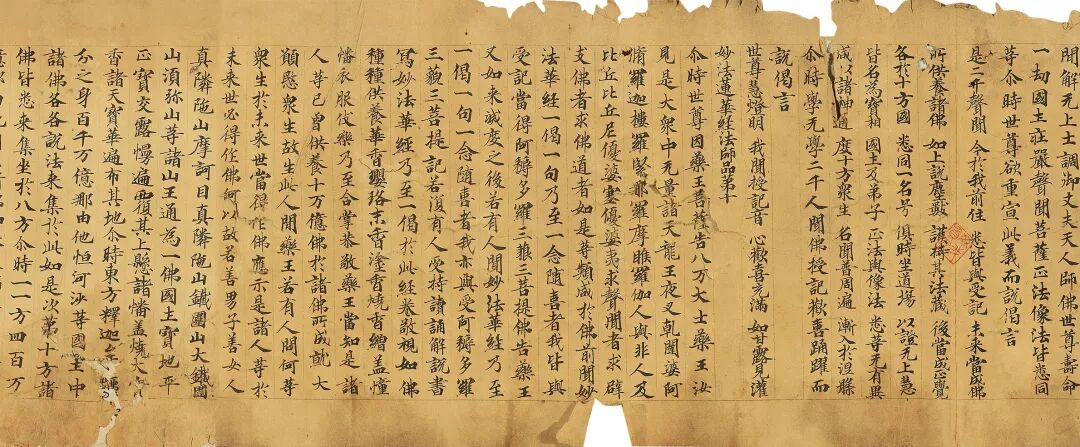 間解无上士調御丈夫天人師佛世尊壽命
一劫國土莊嚴聲聞菩薩正法像法皆悉同
等尒時世尊欲重宣此義而說偈言
是二千聲聞 今於我前住 悉皆與受記 未來當成佛
所供養諸佛 如上說塵數 護持其法藏 後當成正覺
各於十方國 悉同一名号 俱時坐道場 以證无上慧
皆名為寶相 國土及弟子 正法與像法 悉等无有異
咸以諸神通 度十方衆生 名聞普周遍 漸入於涅槃
尒時學无學二千人聞佛授記歡喜踊躍而
說偈言
世尊慧燈明 我聞授記音 心歡喜充滿 如甘露見灌
妙法蓮華經法師品第十
尒時世尊因藥王菩薩告八万大士藥王汝
見是大衆中无量諸天龍王夜叉乹闥婆阿
脩羅迦樓羅緊那羅摩睺羅伽人與非人及
比丘比丘尼優婆塞優婆夷求聲聞者求辟
支佛者求佛道者如是等類咸於佛前聞妙
法華經一偈一句乃至一念隨喜者我皆與
受記當得阿耨多羅三藐三菩提佛告藥王
又如來滅度之後若有人聞妙法華經乃至
一偈一句一念隨喜者我亦與受阿耨多羅
三藐三菩提記若復有人受持讀誦解說書
寫妙法華經乃至一偈於此經卷敬視如佛
種種供養華香瓔珞末香塗香燒香繒盖幢
幡衣服伎樂乃至合掌恭敬藥王當知是諸
人等已曾供養十万億佛於諸佛所成就大
願愍衆生故生此人間藥王若有人問何等
衆生於未來世當得作佛應示是諸人等於
未來世必得作佛何以故若善男子善女人
真隣陁山摩訶目真隣陁山鐵圍山大鐵圍
山須弥山等諸山王通為一佛國土寶地平
正寶交露幔遍覆其上懸諸幡盖燒大
香諸天寶華遍布其地尒時東方釋迦牟
分之身百千万億那由他恒河沙等國土中
諸佛各各說法來集於此如是次第十方諸
佛皆悉來集坐於八方尒時一一方四百万